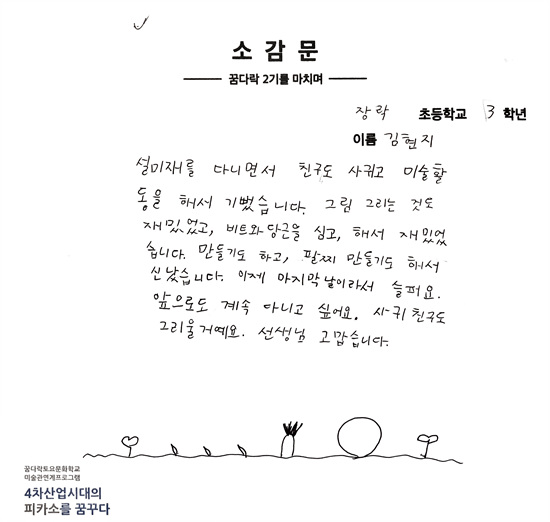 소 감 문
꿈다락 2기를 마치며
장락 초등학교 3 학년
이름 김현지
설미재를 다니면서 친구도 사귀고 미술활
동을 해서 기뻤습니다. 그림 그리는 것도
재밌었고, 비트와 당근을 심고, 해서 재밌었
습니다. 만들기도 하고, 팔찌 만들기도 해서
신났습니다. 이제 마지막 날이라서 슬퍼요.
앞으로도 계속 다니고 싶어요. 사귀 친구도
그리울거예요. 선생님 고맙습니다.
꿈다락토요문화학교
미술관연계프로그램
4차산업시대의
피카소를 꿈꾸다